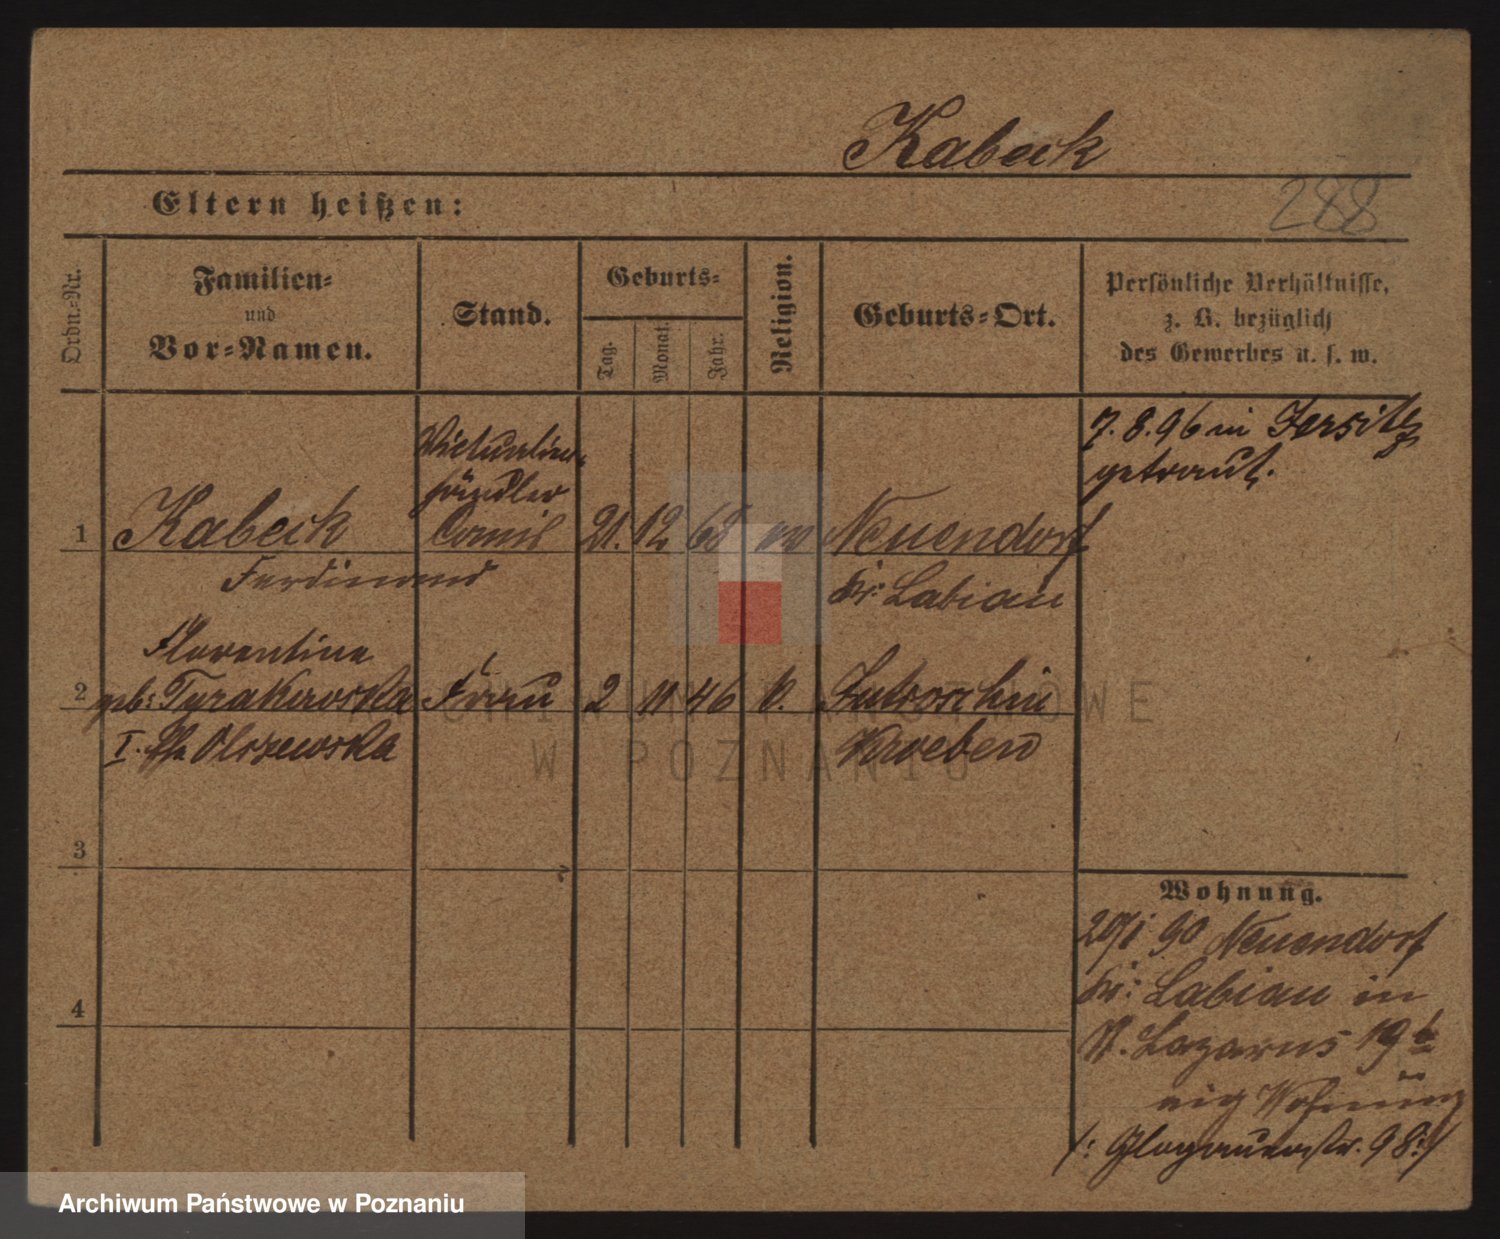 Kabeck
288
Eltern heißen:
Ordn.-Nr.
Familien-
und
Vor-Namen.
Stand.
Geburts-
Tag.
Monat.
Jahr.
Religion.
Geburts-Ort.
Persönliche Verhältnisse,
z. B. bezüglich
des Gewerbes u. s. w.
7. 8. 96 in Jersitz
getraut.
Victualien-
händler
1 Kabeck 21. 12 68 Neuendorf
Ferdinand Kr: Labiau
Florentine
2 geb: Tyrakowska Frau 2 11 46 Lutroschin
I. Olszewska Kroeben
3
4
Wohnung.
20/1 90 Neuendorf
Kr: Labiau in
St. Lazarus 19
eig Wohnung
/: Glogauerstr. 98 :/
ARCHIWUM PAŃSTWOWE
W POZNANIU
Archiwum Państwowe w Poznaniu